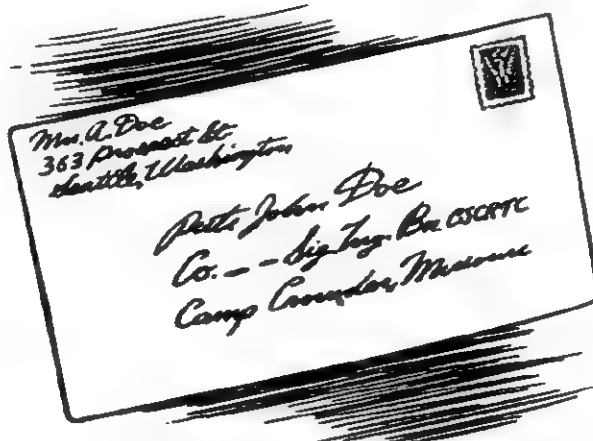 Mrs. A. Doe
363 Prospect St.
Seattle, Washington
Pvt. John Doe
Co. — — Sig. Tng. Bn. CSCRTC
Camp Crowder, Missouri